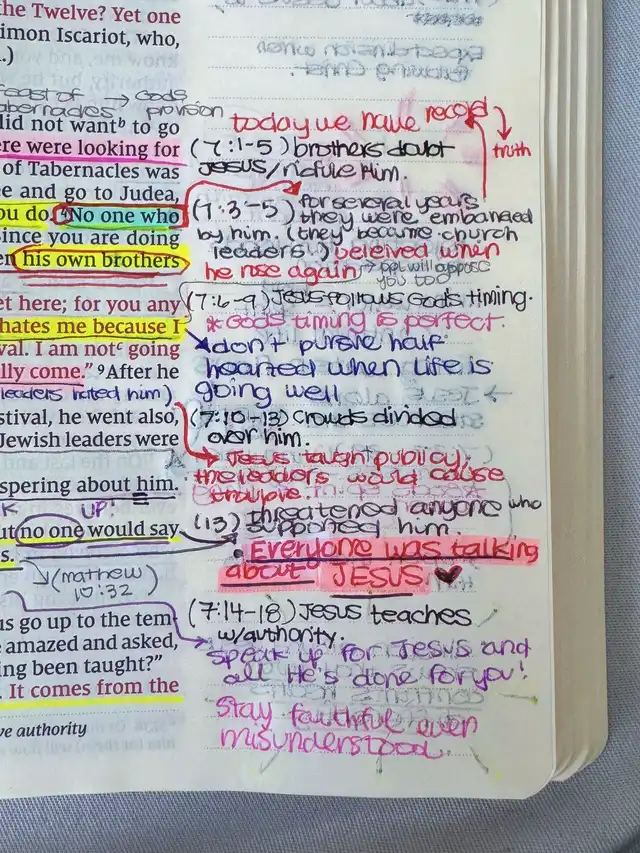 the Twelve? Yet one
imon Iscariot, who,
.)
feast of → Gods
abernacles provision
did not wantᵇ to go
ere were looking for
of Tabernacles was
e and go to Judea,
ou do. ⁴No one who
since you are doing
en his own brothers
et here; for you any
hates me because I
val. I am notᶜ going
lly come." ⁹After he
leaders hated him)
stival, he went also,
Jewish leaders were
spering about him.
UP!
ut no one would say
s.
(mathew
10:32
us go up to the tem-
e amazed and asked,
ing been taught?"
. It comes from the
ve authority
today we have record
truth
(7:1-5) brothers doubt
Jesus/ridicule Him.
(7:3-5) for several years
they were embanded
by him. (they became church
leaders.) beleived when
he rose again → ppl will apposc
you too
(7:6-9) Jesus follows God's timing.
*Gods timing is perfect.
don't pursue half
hearted when life is
going well
(7:10-13) crowds divided
over him.
Jesus taught publicy,
the leaders would cause
trouble.
(13) threatened anyone who
supported him.
• Everyone was talking
about JESUS ♥
(7:14-18) Jesus teaches
w/authority.
speak up for Jesus and
all He's done for you!
Stay faithful even
misunderstood.